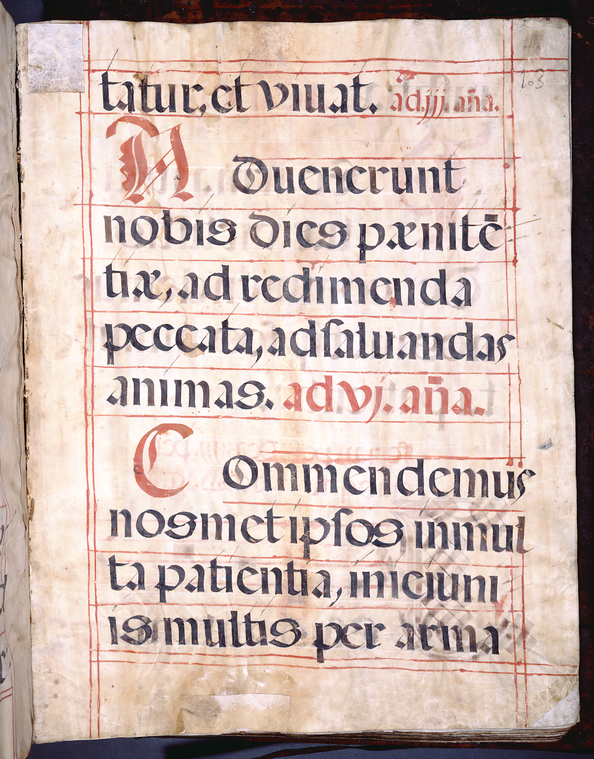 103
tatur, et viuat. ad.jjj. aña.
ADuenerunt
nobis dies pænitē
tiæ, ad redimenda
peccata, ad ſaluandas
animas. ad vj. aña.
COmmendemus
nosmet ipſos in mul
ta patientia, in ieiuni
is multis per arma